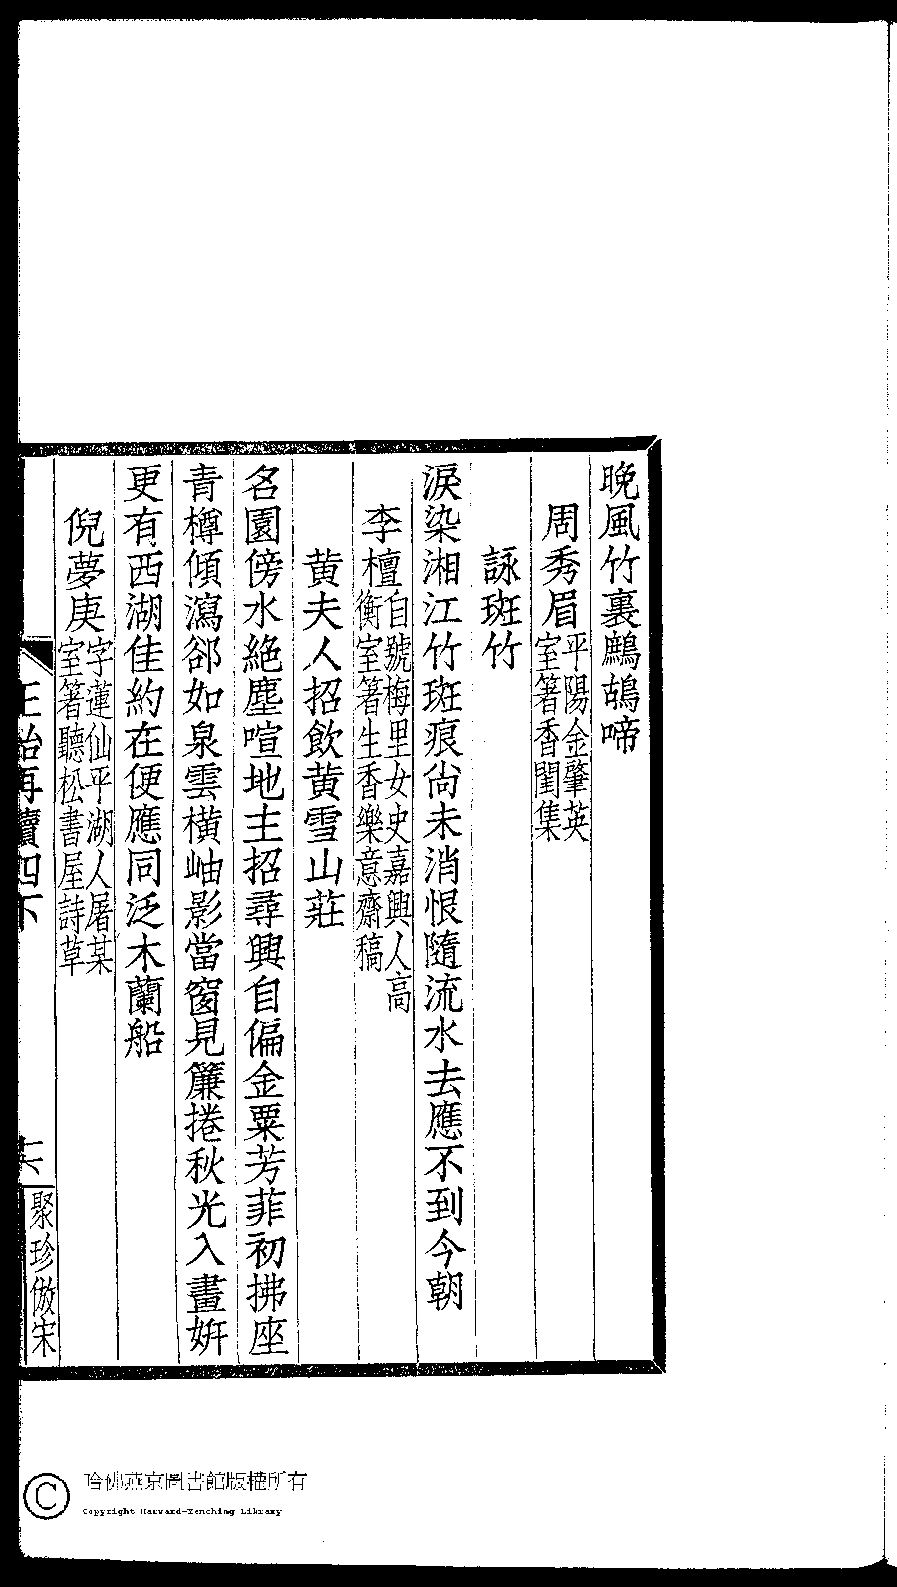 晚風竹裏鷓鴣啼
周秀眉平陽金肇英
室箸香閨集
詠斑竹
淚染湘江竹斑痕尙未消恨隨流水去應不到今朝
李檀自號梅里女史嘉興人高
衡室箸生香樂意齋稿
黄夫人招飲黄雪山莊
名園傍水絶塵喧地主招尋興自偏金粟芳菲初拂座
青樽傾瀉郤如泉雲橫岫影當窗見簾捲秋光入畫姸
更有西湖佳約在便應同泛木蘭船
倪夢庚字蓮仙平湖人屠某
室箸聽松書屋詩草
正始再續四下
十六
聚珍倣宋
哈佛燕京圖書館版權所有
Copyright Harvard-Yenching Library